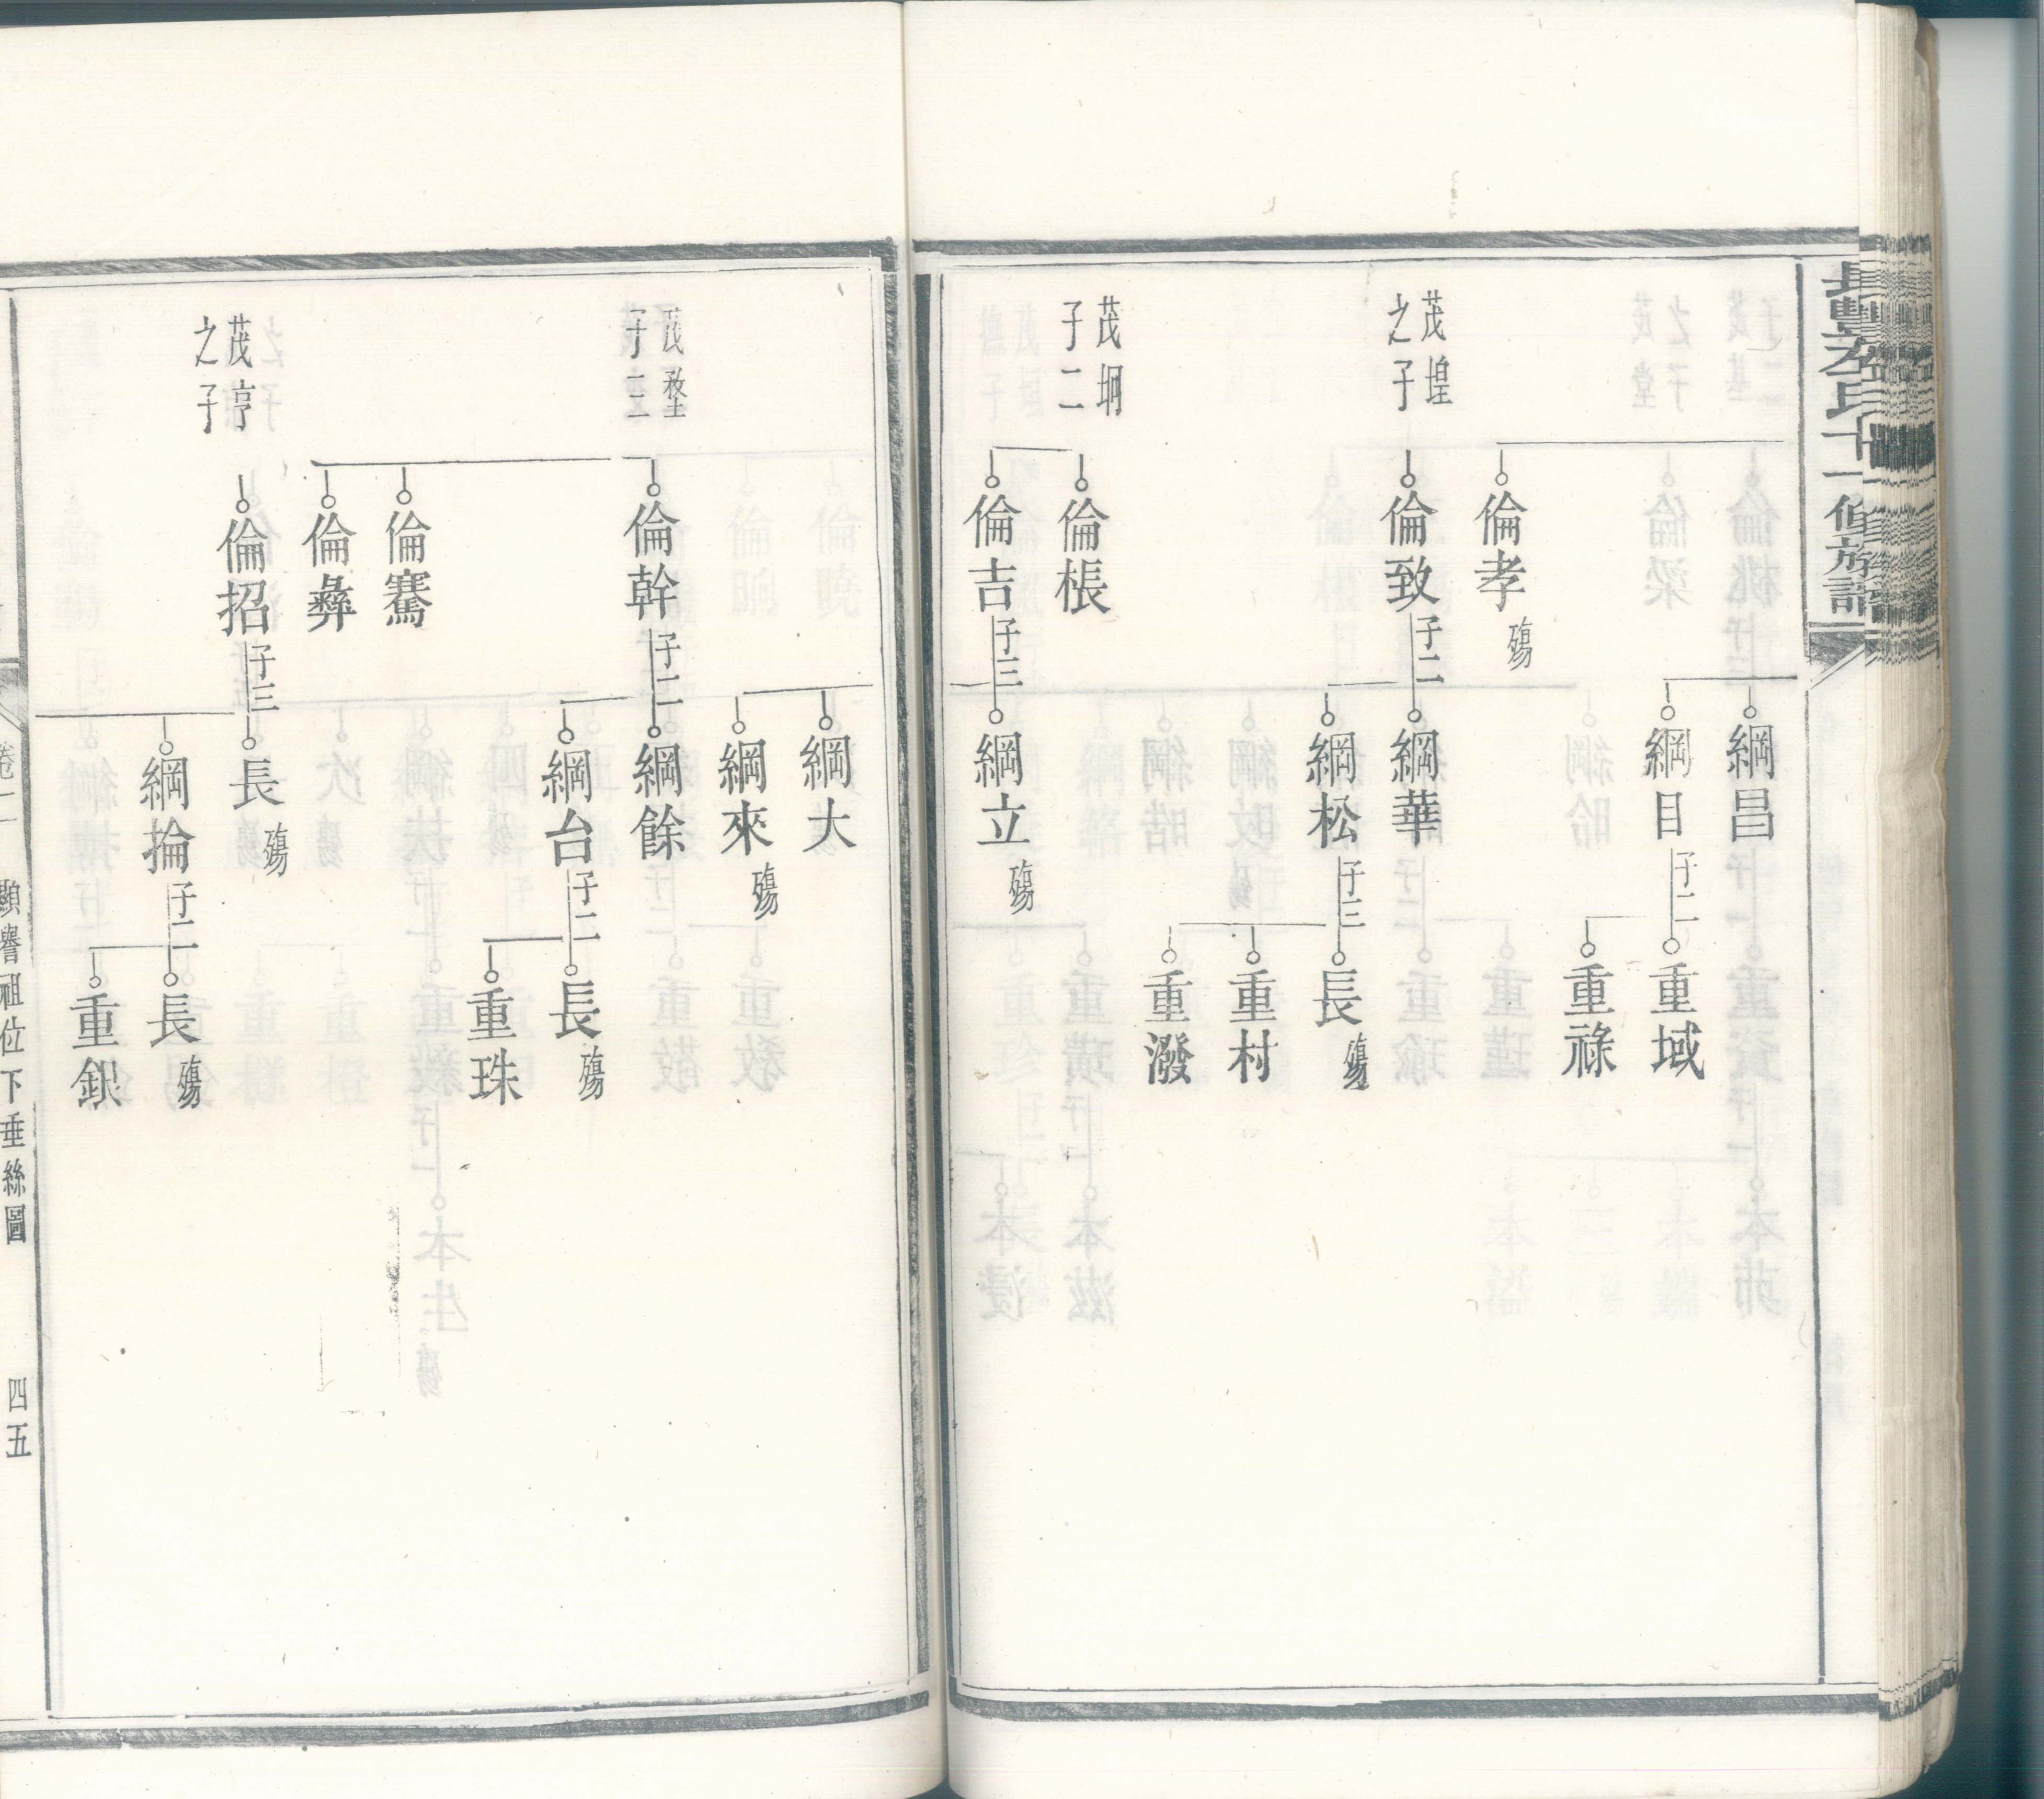 長豐李氏十一修族譜
綱昌
綱日子二
重域
重祿
倫孝殤
茂堭之子
倫致子二
綱華
綱松子三
長殤
重村
重潑
茂坰子二
倫棖
倫吉子三
綱立殤
綱大
綱來殤
子三
倫幹子二
綱餘
綱台子二
長殤
重珠
倫騫
倫彝
茂亨之子
倫招子三
長殤
綱掄子二
長殤
重銀
卷二
顯譽祖位下垂絲圖
四五